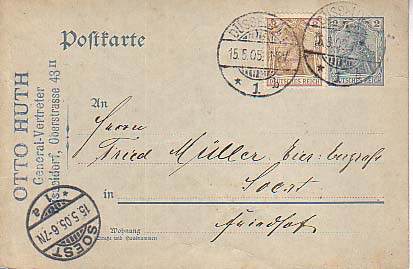 Postkarte
DÜSSEL
15.5.05.
* 1
3
DEUTSCHES REICH
2
2
DEUTSCHES REICH
OTTO HUTH
General-Vertreter
Oberstrasse 43 II
An
Herrn
Fried Müller
in Soest
Friedhof
Wohnung
(Straße und Hausnummer)
SOEST
15.5.05.6-7N
* a